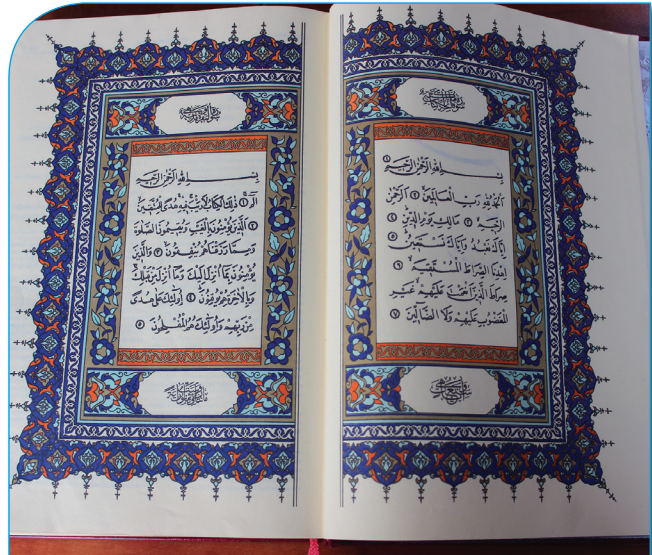 بِسْمِ اللّٰهِ الرَّحْمٰنِ الرَّحِيمِ ١
اَلْحَمْدُ لِلّٰهِ رَبِّ الْعَالَمِينَ ٢ اَلرَّحْمٰنِ
الرَّحِيمِ ٣ مَالِكِ يَوْمِ الدِّينِ ٤
اِيَّاكَ نَعْبُدُ وَاِيَّاكَ نَسْتَعِينُ ٥
اِهْدِنَا الصِّرَاطَ الْمُسْتَقِيمَ ٦
صِرَاطَ الَّذِينَ اَنْعَمْتَ عَلَيْهِمْ غَيْرِ
الْمَغْضُوبِ عَلَيْهِمْ وَلَا الضَّالِّينَ ٧
بِسْمِ اللّٰهِ الرَّحْمٰنِ الرَّحِيمِ
الٓمٓ ١ ذٰلِكَ الْكِتَابُ لَا رَيْبَ فِيهِ هُدًى لِلْمُتَّقِينَ
٢ اَلَّذِينَ يُؤْمِنُونَ بِالْغَيْبِ وَيُقِيمُونَ الصَّلٰوةَ
وَمِمَّا رَزَقْنَاهُمْ يُنْفِقُونَ ٣ وَالَّذِينَ
يُؤْمِنُونَ بِمَا اُنْزِلَ اِلَيْكَ وَمَا اُنْزِلَ مِنْ قَبْلِكَ
وَبِالْاٰخِرَةِ هُمْ يُوقِنُونَ ٤ اُولٰئِكَ عَلٰى هُدًى
مِنْ رَبِّهِمْ وَاُولٰئِكَ هُمُ الْمُفْلِحُونَ ٥